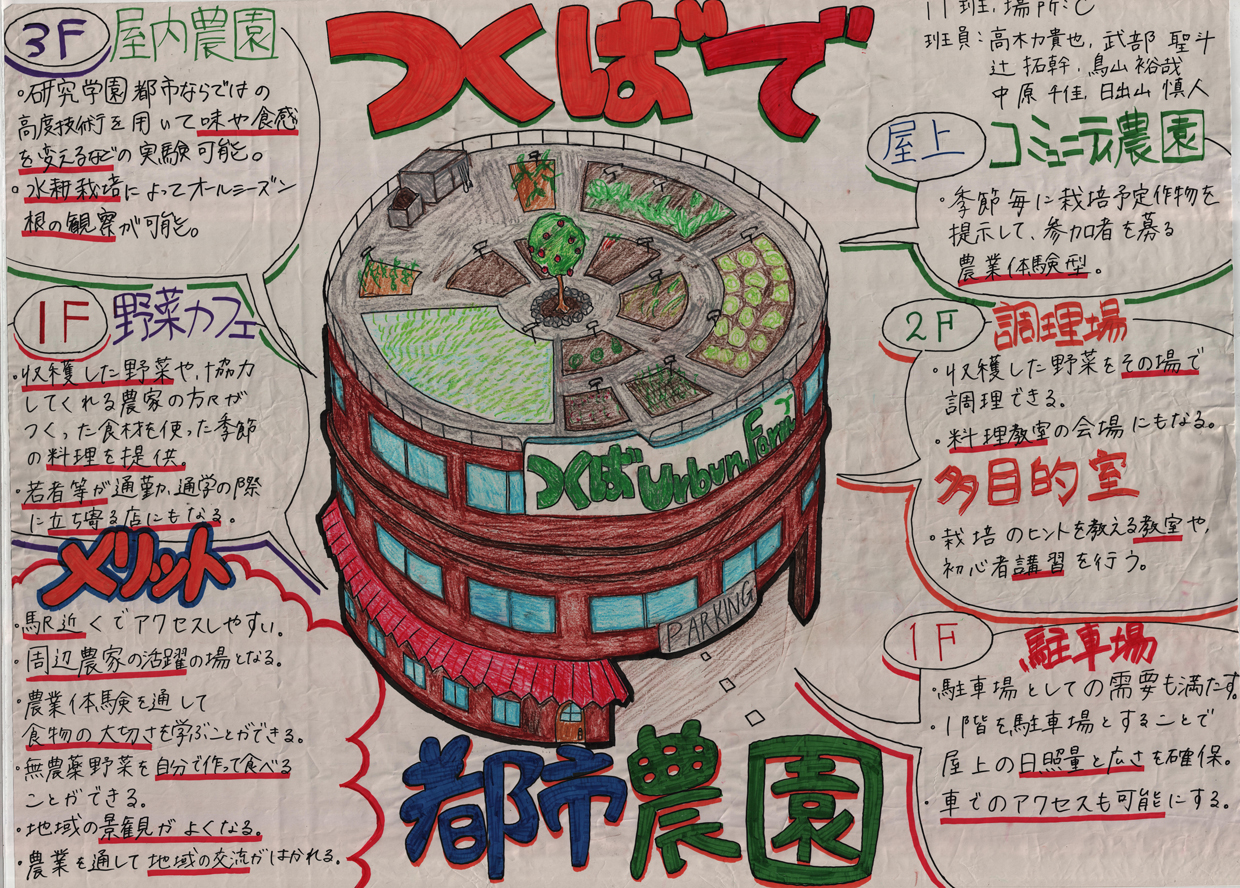 つくばで
都市農園
11班,場所:C
班員:高木力貴也, 武部 聖斗
辻 拓幹, 鳥山 裕哉
中原 千佳, 日出山 慎人
3F 屋内農園
・研究学園都市ならではの
高度技術を用いて味や食感
を変えるなどの実験可能。
・水耕栽培によってオールシーズン
根の観察が可能。
1F 野菜カフェ
・収穫した野菜や,協力
してくれる農家の方々が
つくった食材を使った季節
の料理を提供。
・若者等が通勤,通学の際
に立ち寄る店にもなる。
メリット
・駅近くでアクセスしやすい。
・周辺農家の活躍の場となる。
・農業体験を通して
食物の大切さを学ぶことができる。
・無農薬野菜を自分で作って食べる
ことができる。
・地域の景観がよくなる。
・農業を通して地域の交流がはかれる。
つくばUrbun Farm
PARKING
屋上 コミュニティ農園
・季節毎に栽培予定作物を
提示して、参加者を募る
農業体験型。
2F 調理場
・収穫した野菜をその場で
調理できる。
・料理教室の会場にもなる。
多目的室
・栽培のヒントを教える教室や,
初心者講習を行う。
1F 駐車場
・駐車場としての需要も満たす。
・1階を駐車場とすることで
屋上の日照量と広さを確保。
・車でのアクセスも可能にする。